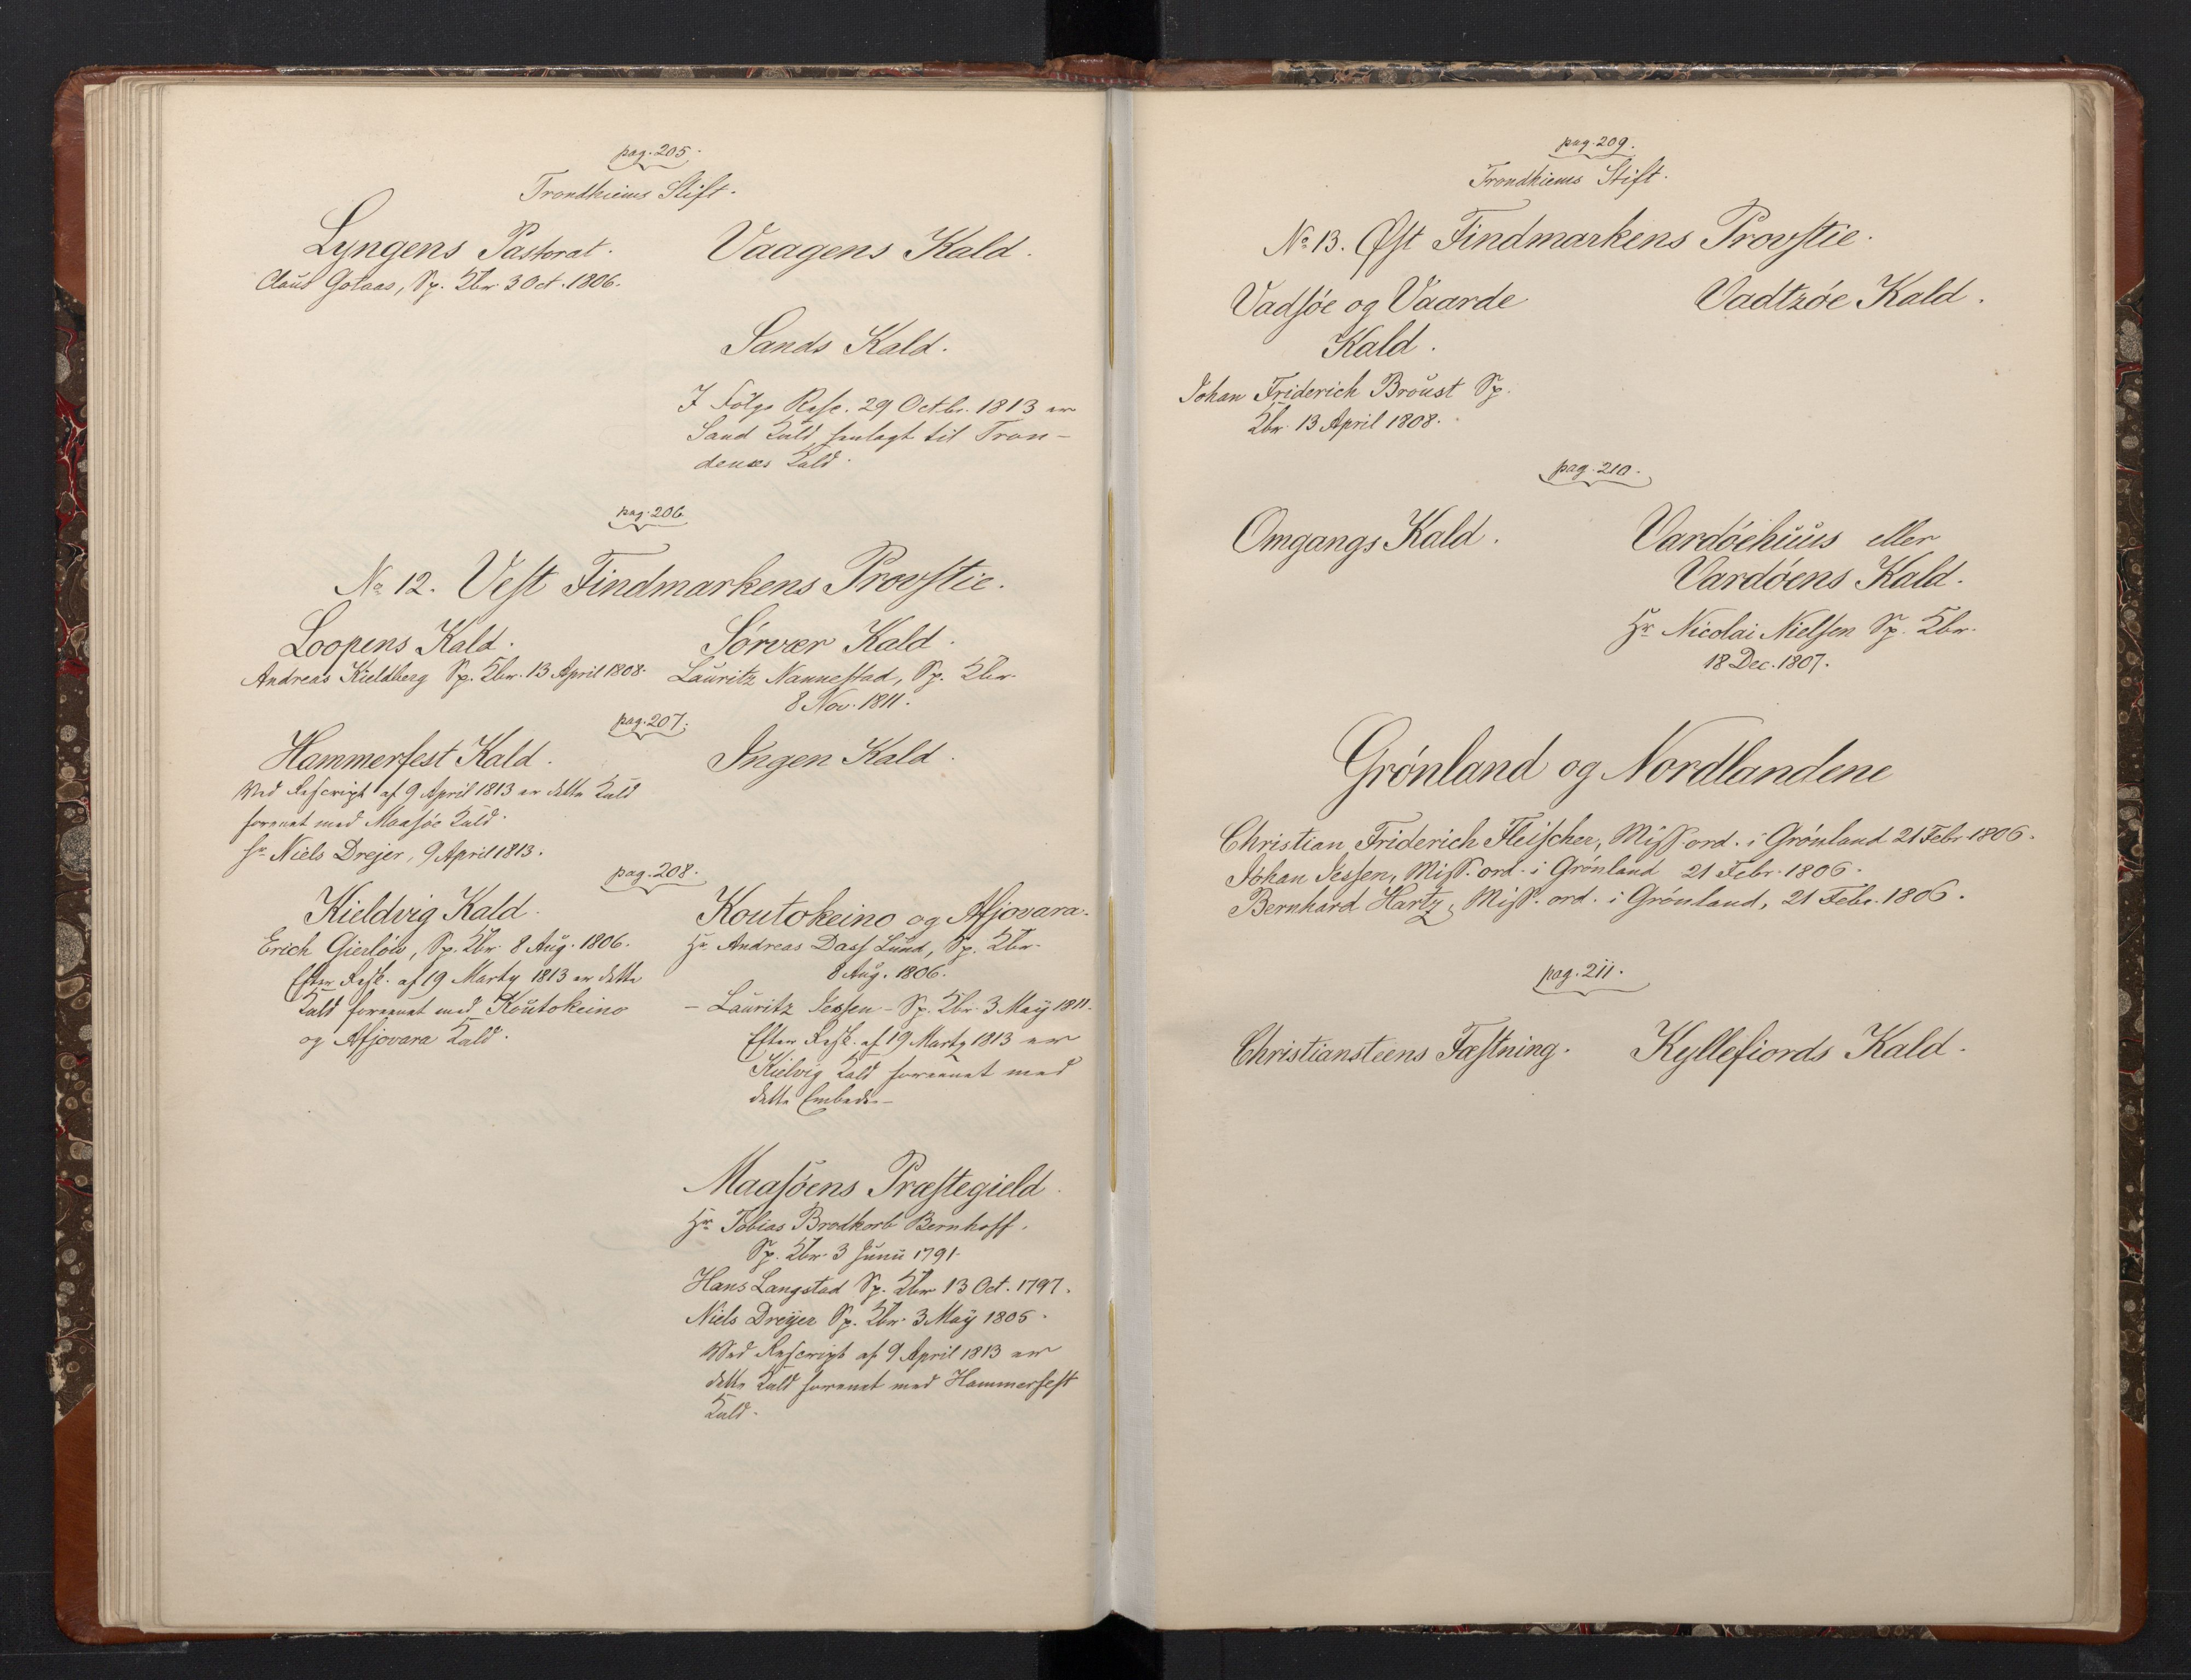 pag. 205.
Trondhiems Stift.
Lyngens Pastorat.
Claus Gotaas, Sp. Kbr. 3 Oct. 1806.
Vaagens Kald.
Sands Kald.
I Følge Resc. 29 Octbr. 1813 er
Sand Kald henlagt til Tron-
denæs Kald.
pag. 206
No 12. Vest Findmarkens Provstie.
Loopens Kald.
Andreas Kieldberg Sp. Kbr. 13 April 1808.
Sørvær Kald.
Lauritz Nannestad, Sp. Kbr.
8 Nov. 1811.
pag. 207.
Hammerfest Kald.
Ved Rescript af 9 April 1813 er dette Kald
forenet med Maasøe Kald.
Hr Niels Drejer, 9 April 1813.
Ingen Kald.
pag. 208.
Kieldvig Kald.
Erich Gierløw, Sp. Kbr. 8 Aug. 1806.
Efter Resk. af 19 Marty 1813 er dette
Kald foreenet med Koutokeino
og Afjovara Kald.
Koutokeino og Afjovara.
Hr Andreas Dass Lund, Sp. Kbr.
8 Aug. 1806.
- Lauritz Jessen - Sp. Kbr. 3 Maÿ 1811.
Efter Resk. af 19 Marty 1813 er
Kielvig Kald foreenet med
dette Embede.
Maasøens Præstegield.
Hr Tobias Brodkorb Bernhoff.
Sp. Kbr. 3 Junii 1791.
Hans Langstad Sp. Kbr 13 Oct. 1797.
Niels Dreÿer Sp. Kbr. 3 Maÿ 1805.
Ved Rescript af 9 April 1813 er
dette Kald forenet med Hammerfest
Kald.
pag. 209.
Trondhiems Stift.
No 13. Øst Findmarkens Provstie.
Vadsøe og Vaarde
Kald.
Johan Friderich Broust Sp.
Kbr. 13 April 1808.
Vadtzøe Kald.
pag. 210.
Omgangs Kald.
Vardøehuus eller
Vardøens Kald.
Hr Nicolai Nielsen Sp. Kbr.
18 Dec. 1807.
Grønland og Nordlandene
Christian Friderich Fleischer, Miss. ord. i Grønland 21 Febr. 1806.
Johan Jessen, Miss. ord. i Grønland 21 Febr. 1806.
Bernhard Hartz, Miss. ord. i Grønland, 21 Febr. 1806.
pag. 211.
Christiansteens Fæstning.
Kyllefiords Kald.